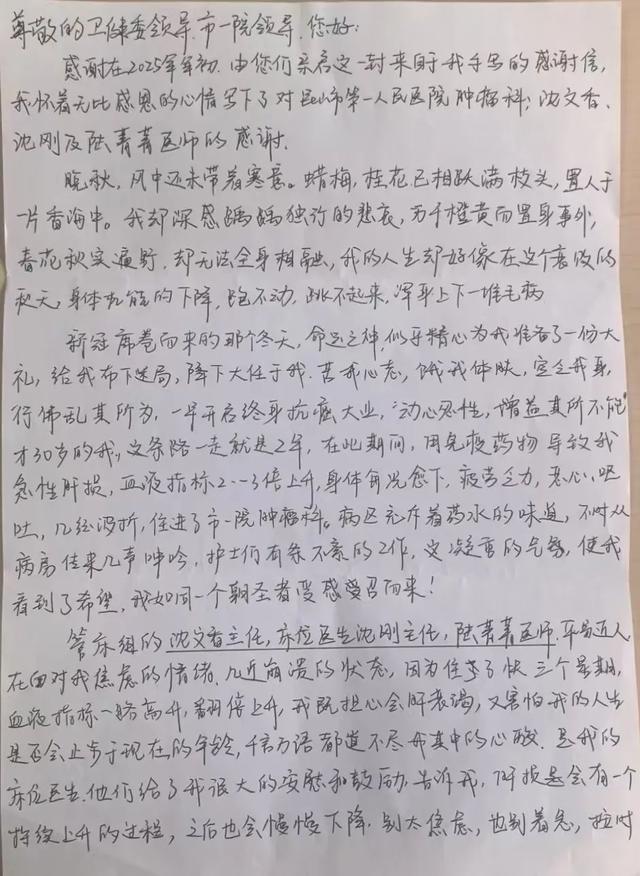 尊敬的卫健委领导.市一院领导.您好:
感谢在2025年年初.由您们亲启这一封来自于我手写的感谢信,
我怀着无比感恩的心情写下了对昆山市第一人民医院肿瘤科:沈文香、
沈刚及陆菁菁医师的感谢.
晚秋,风中还未带着寒意。蜡梅,桂花已相跃满枝头,置人于
一片香海中。我却深感妈妈独订的悲哀,为千橙黄而置身事外,
春花秋实遍野.却无法全身相融,我的人生却好像在这个衰败的
秋天,身体机能的下降,跑不动,跳不起来,浑身上下一堆毛病
新冠席卷而来的那个冬天,命运之神,似乎精心为我准备了一份大
礼,给我布下迷局,降下大任于我.苦我心志,饿我体肤,空乏我身,
行佛乱其所为,一早开启终身抗癌大业,动心忍性,增益其所不能"
才30岁的我,这条路一走就是2年,在此期间,用免疫药物导致我
急性肝损,血液指标2--3倍上升,身体每况愈下,疲劳乏力,恶心、呕
吐,几经波折,住进了市一院肿瘤科。病区充斥着药水的味道,不时从
病房传来几声呻吟,护士们有条不紊的工作,这凝重的气氛,使我
看到了希望,我如同一个朝圣者受感爱召而来!
管床组的沈文香主任,床位医生沈刚主任,陆菁菁医师.平易近人
在面对我焦虑的情绪.几近崩溃的状态,因为住了快三个星期,
血液指标一路高升,翻倍上升,我既担心会肝衰竭,又害怕我的人生
是否会止步于现在的年龄,千言万语都道不尽我其中的心酸.是我的
床位医生.他们给了我很大的安慰和鼓励.告诉我,肝损是会有一个
持续上升的过程,之后也会慢慢下降.别太焦虑,也别着急,按时